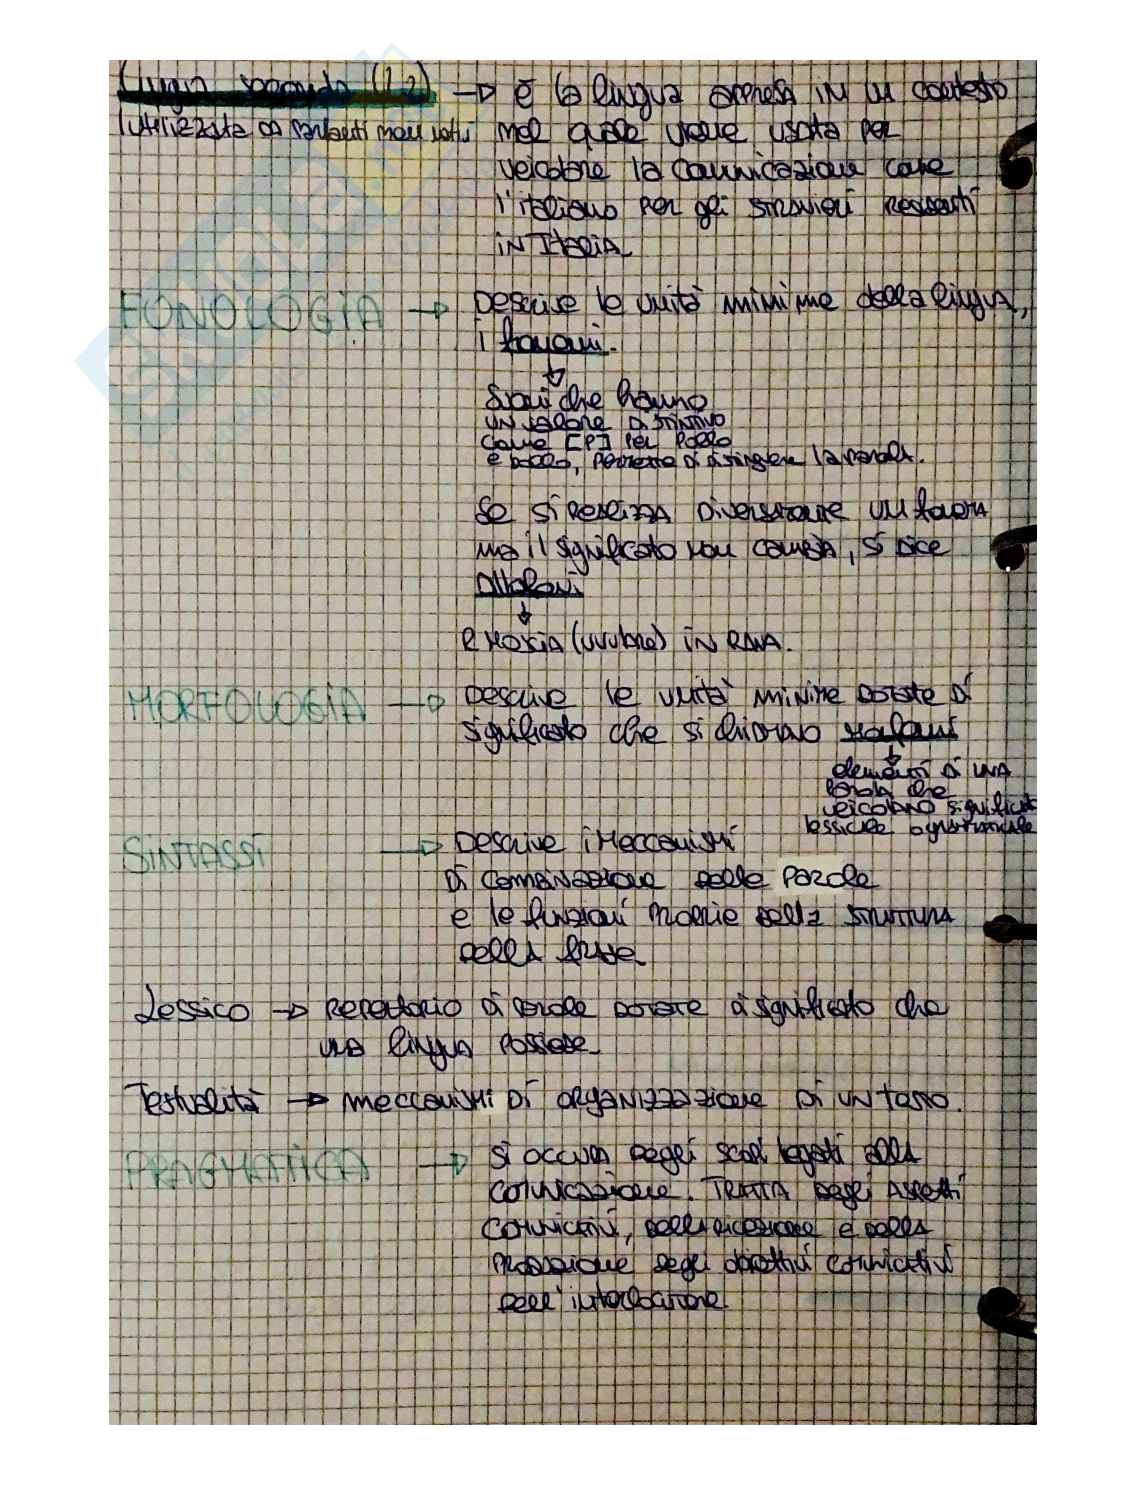 Lingua seconda (L2) → È la lingua appresa in un contesto
(utilizzata da parlanti non nativi nel quale viene usata per
veicolare la comunicazione come
l'italiano per gli stranieri residenti
in Italia.
FONOLOGIA → Descrive le unità minime della lingua,
i fonemi.
↓
Suoni che hanno
un valore distintivo
come [P] per Pollo
e bollo, permette di distinguere la parola.
Se si realizza diversamente un fonema
ma il significato non cambia, si dice
Allofoni
↓
R moscia (uvulare) in RANA.
MORFOLOGIA → Descrive le unità minime dotate di
significato che si chiamano morfemi
↓
elementi di una
parola che
veicolano significato
lessicale o grammaticale
SINTASSI → Descrive i meccanismi
di combinazione delle parole
e le funzioni proprie della struttura
della frase.
Lessico → Repertorio di parole dotate di significato che
una lingua possiede.
Testualità → meccanismi di organizzazione di un testo.
PRAGMATICA → si occupa degli scopi legati alla
comunicazione. Tratta degli aspetti
comunicativi, della ricezione e della
produzione degli obiettivi comunicativi
dell'interlocutore.